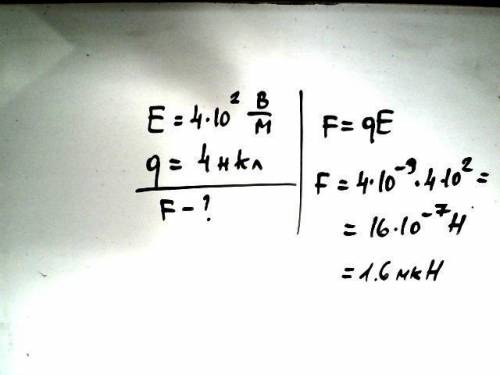 E = 4·10² В/М
q = 4 нкл
F - ?
F = qE
F = 4·10⁻⁹·4·10² =
= 16·10⁻⁷ Н
= 1.6 мкН